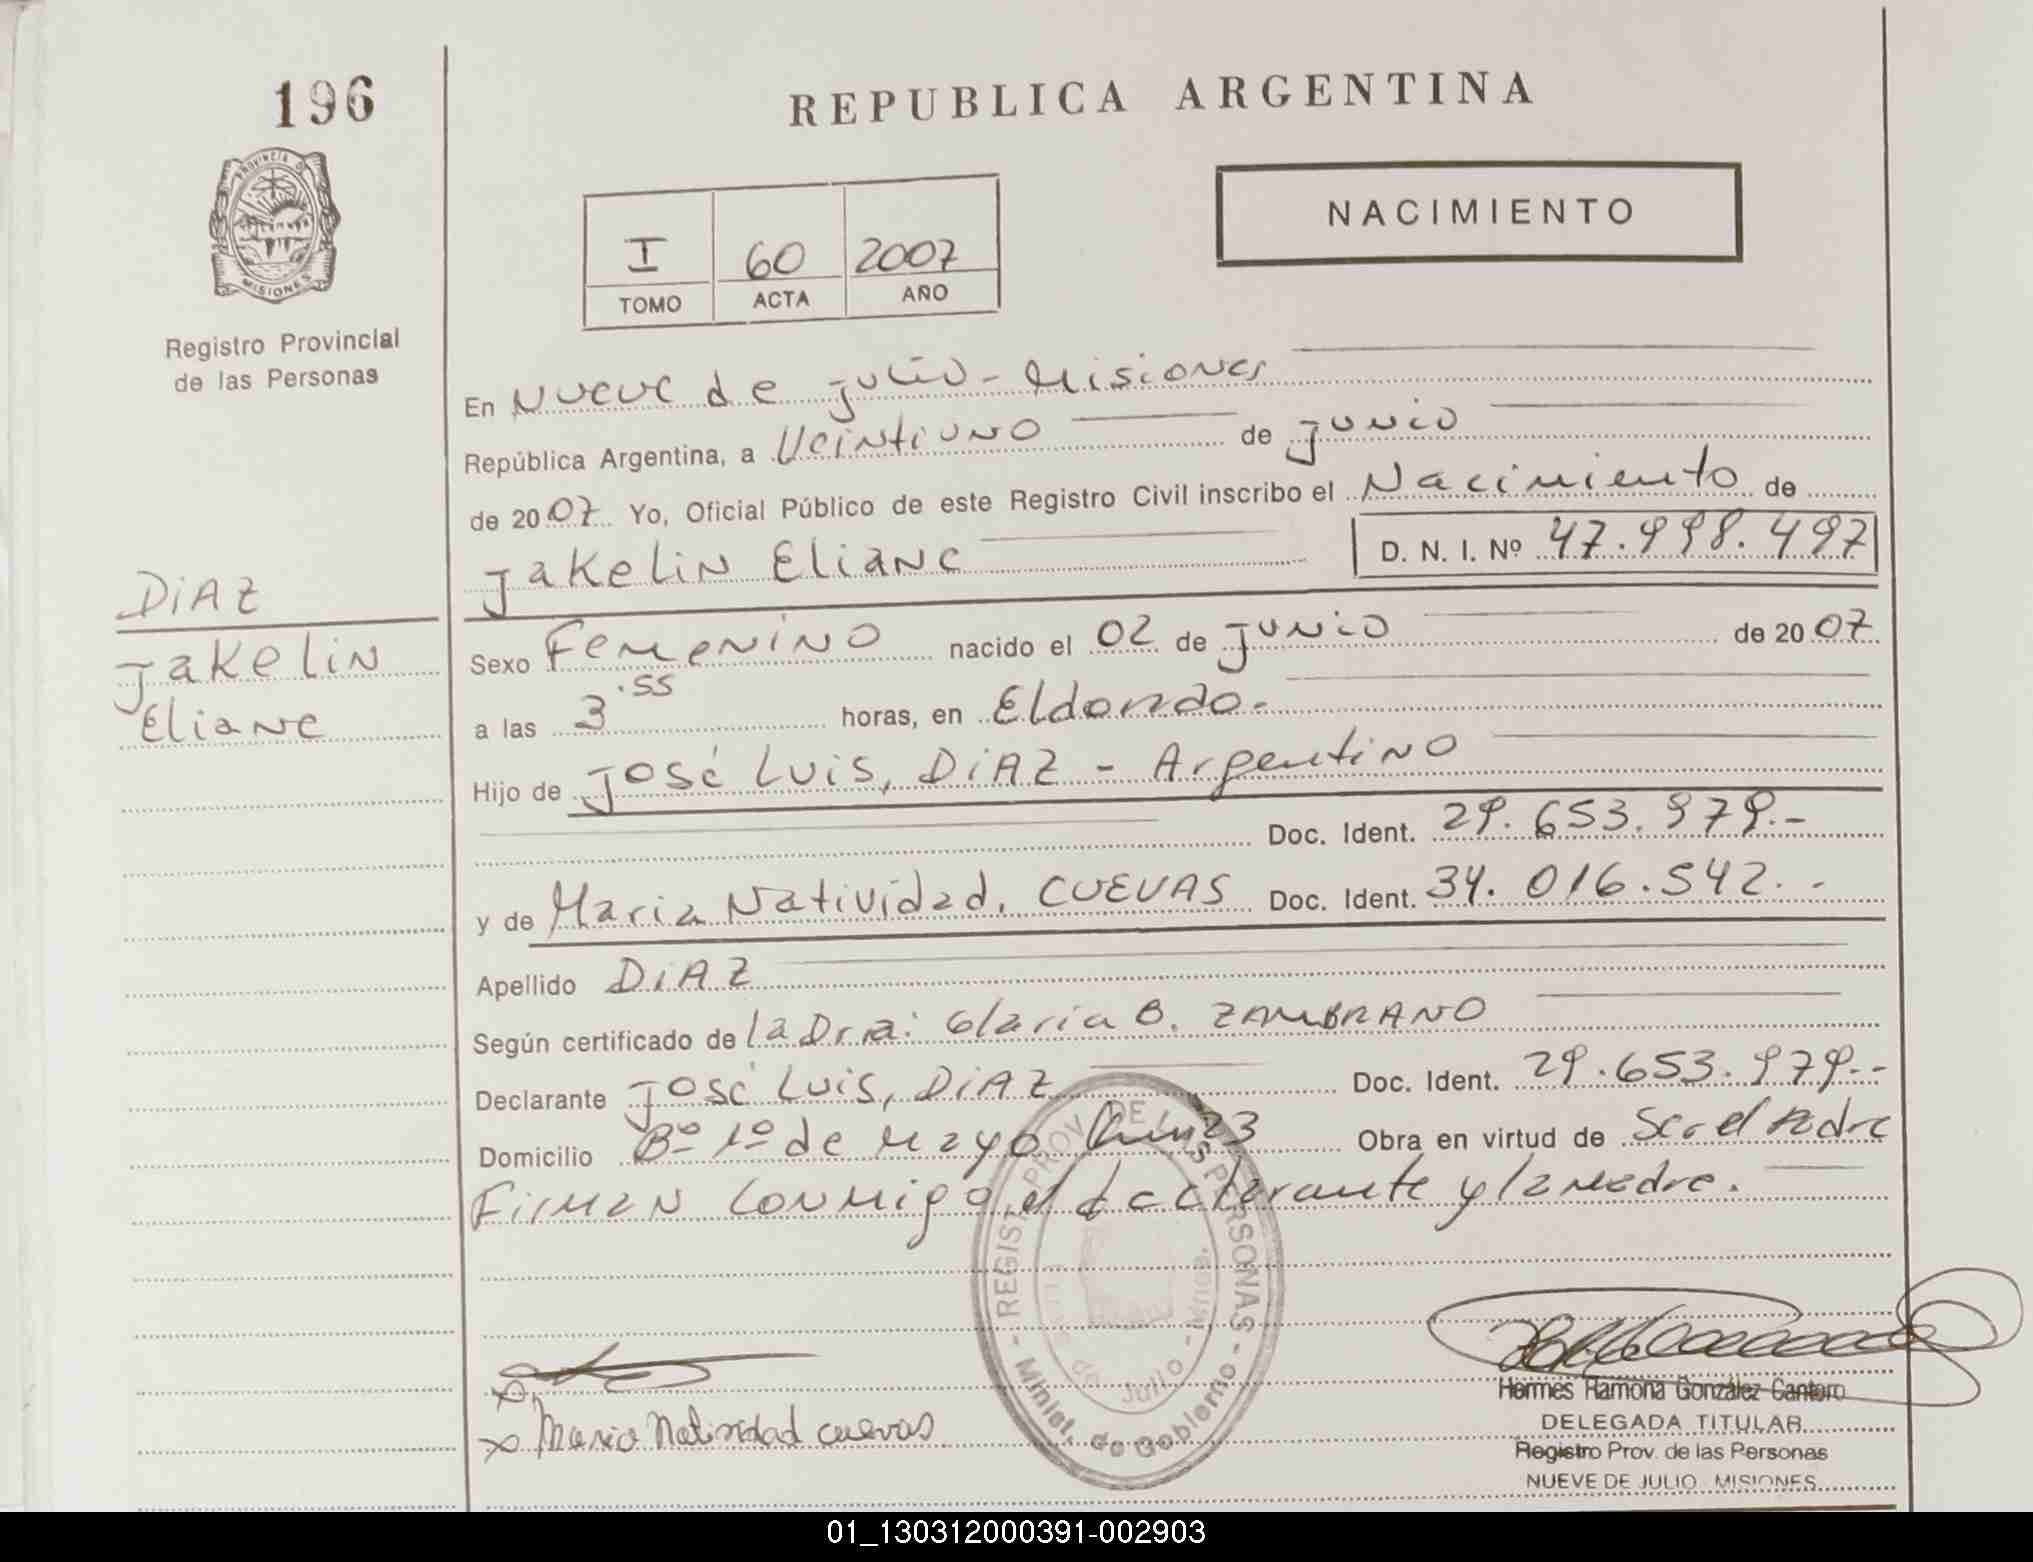 196
REPUBLICA ARGENTINA
PROVINCIA D
MISIONES
NACIMIENTO
I 60 2007
TOMO ACTA AÑO
Registro Provincial
de las Personas
En Nueve de julio - Misiones
República Argentina, a Veintiuno de junio
de 2007 Yo, Oficial Público de este Registro Civil inscribo el Nacimiento de
Jakelin Eliane D. N. I. Nº 47.998.497
DiAZ
Jakelin
Eliane
Sexo Femenino nacido el 02 de junio de 2007
a las 3.55 horas, en Eldorado.
Hijo de José Luis, DiAZ - Argentino
Doc. Ident. 29.653.979.-
y de Maria Natividad, CUEVAS Doc. Ident. 34.016.542.-
Apellido DiAZ
Según certificado de la Dra: Gloria B. ZAMBRANO
Declarante José Luis, DiAZ Doc. Ident. 29.653.979.-
Domicilio Bº 1º de Mayo 23 Obra en virtud de Ser el Padre
Firman conmigo el declarante y la Madre.
- REGIST. PROV. DE LAS PERSONAS -
Minist. de Gobierno
de Julio - Mnes.
x
x Maria Natividad cuevas
Hermes Ramona González Cantero
DELEGADA TITULAR
Registro Prov. de las Personas
NUEVE DE JULIO - MISIONES
01_130312000391-002903